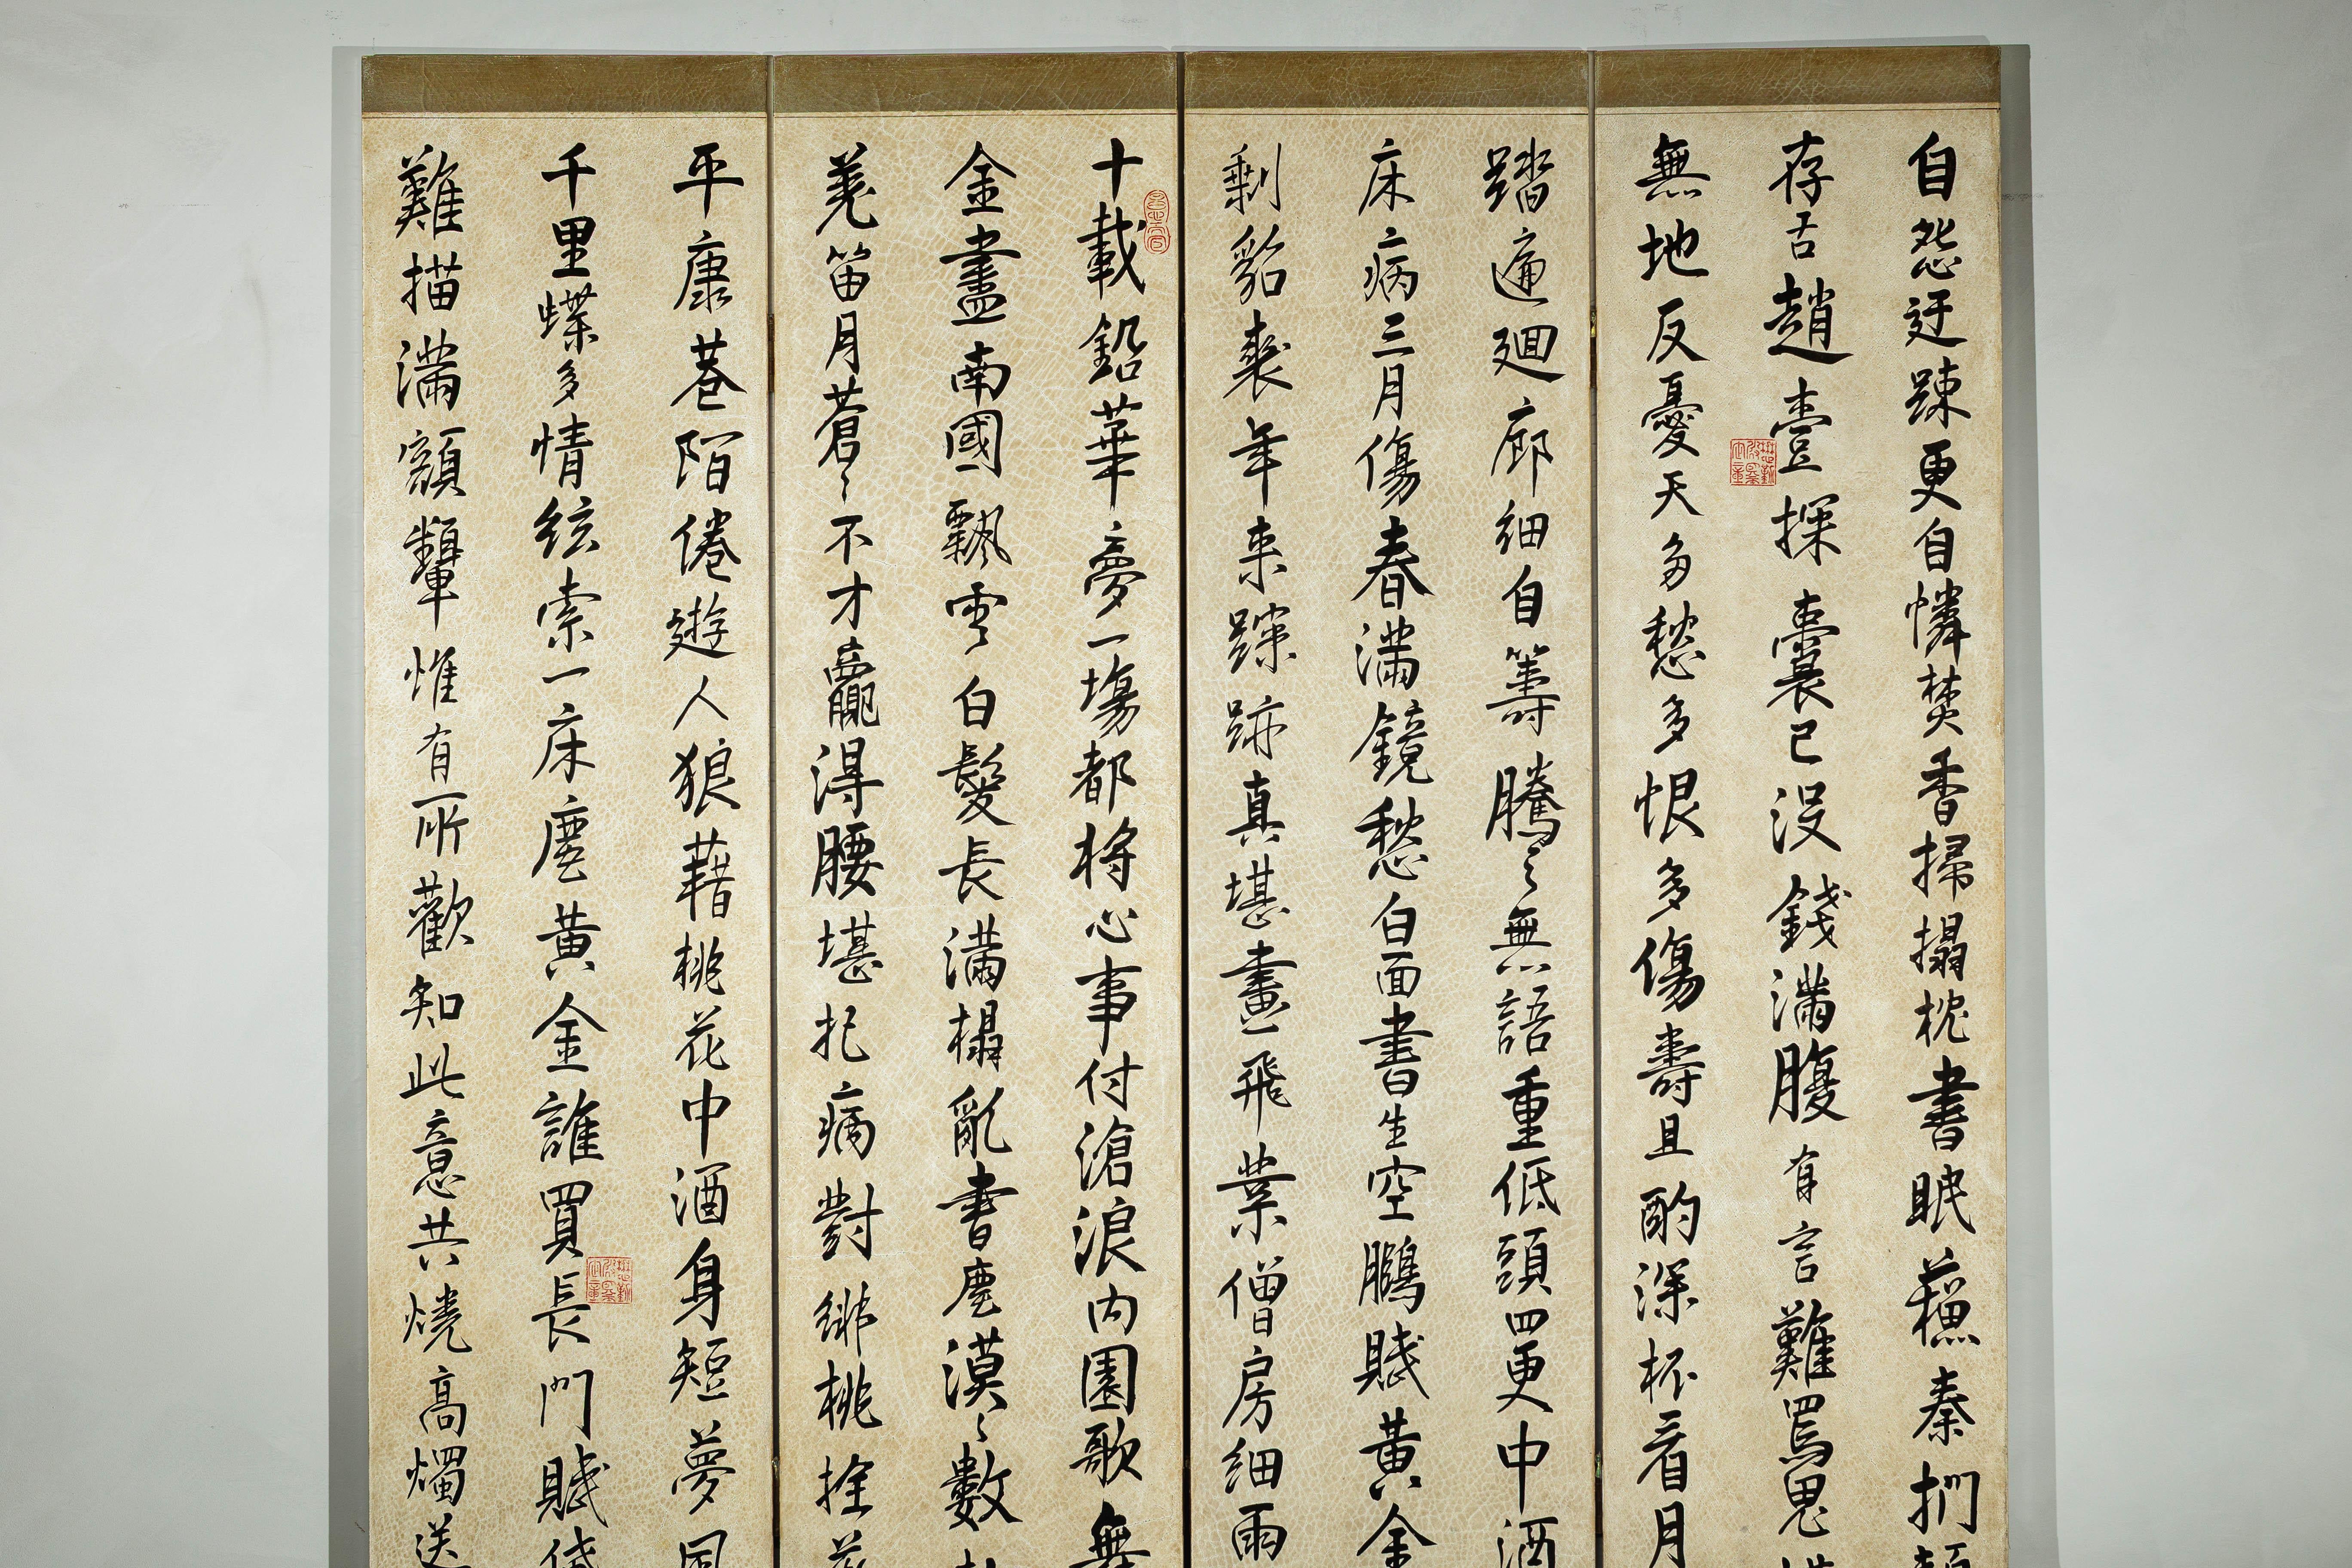 自怨迂踈更自憐焚香掃搨枕書眠蘓秦捫頰
存舌趙壹探囊已没錢滿腹有言難罵鬼
無地反憂天多愁多恨多傷壽且酌深杯看月
踏遍廻廊細自籌騰〻無語重低頭四更中酒
床病三月傷春滿鏡愁白面書生空鵩賦黃金
剩貂裘年来蹤跡真堪畫飛葉僧房細雨
十載鉛華夢一塲都将心事付滄浪内園歌舞
金盡南國飄零白髮長滿榻亂書塵漠〻數
羗笛月蒼〻不才羸得腰堪把病對緋桃拴
平康巷陌倦遊人狼藉桃花中酒身短夢風
千里蝶多情絃索一床塵黃金誰買長門賦
難描滿額顰惟有所歡知此意共燒高燭送